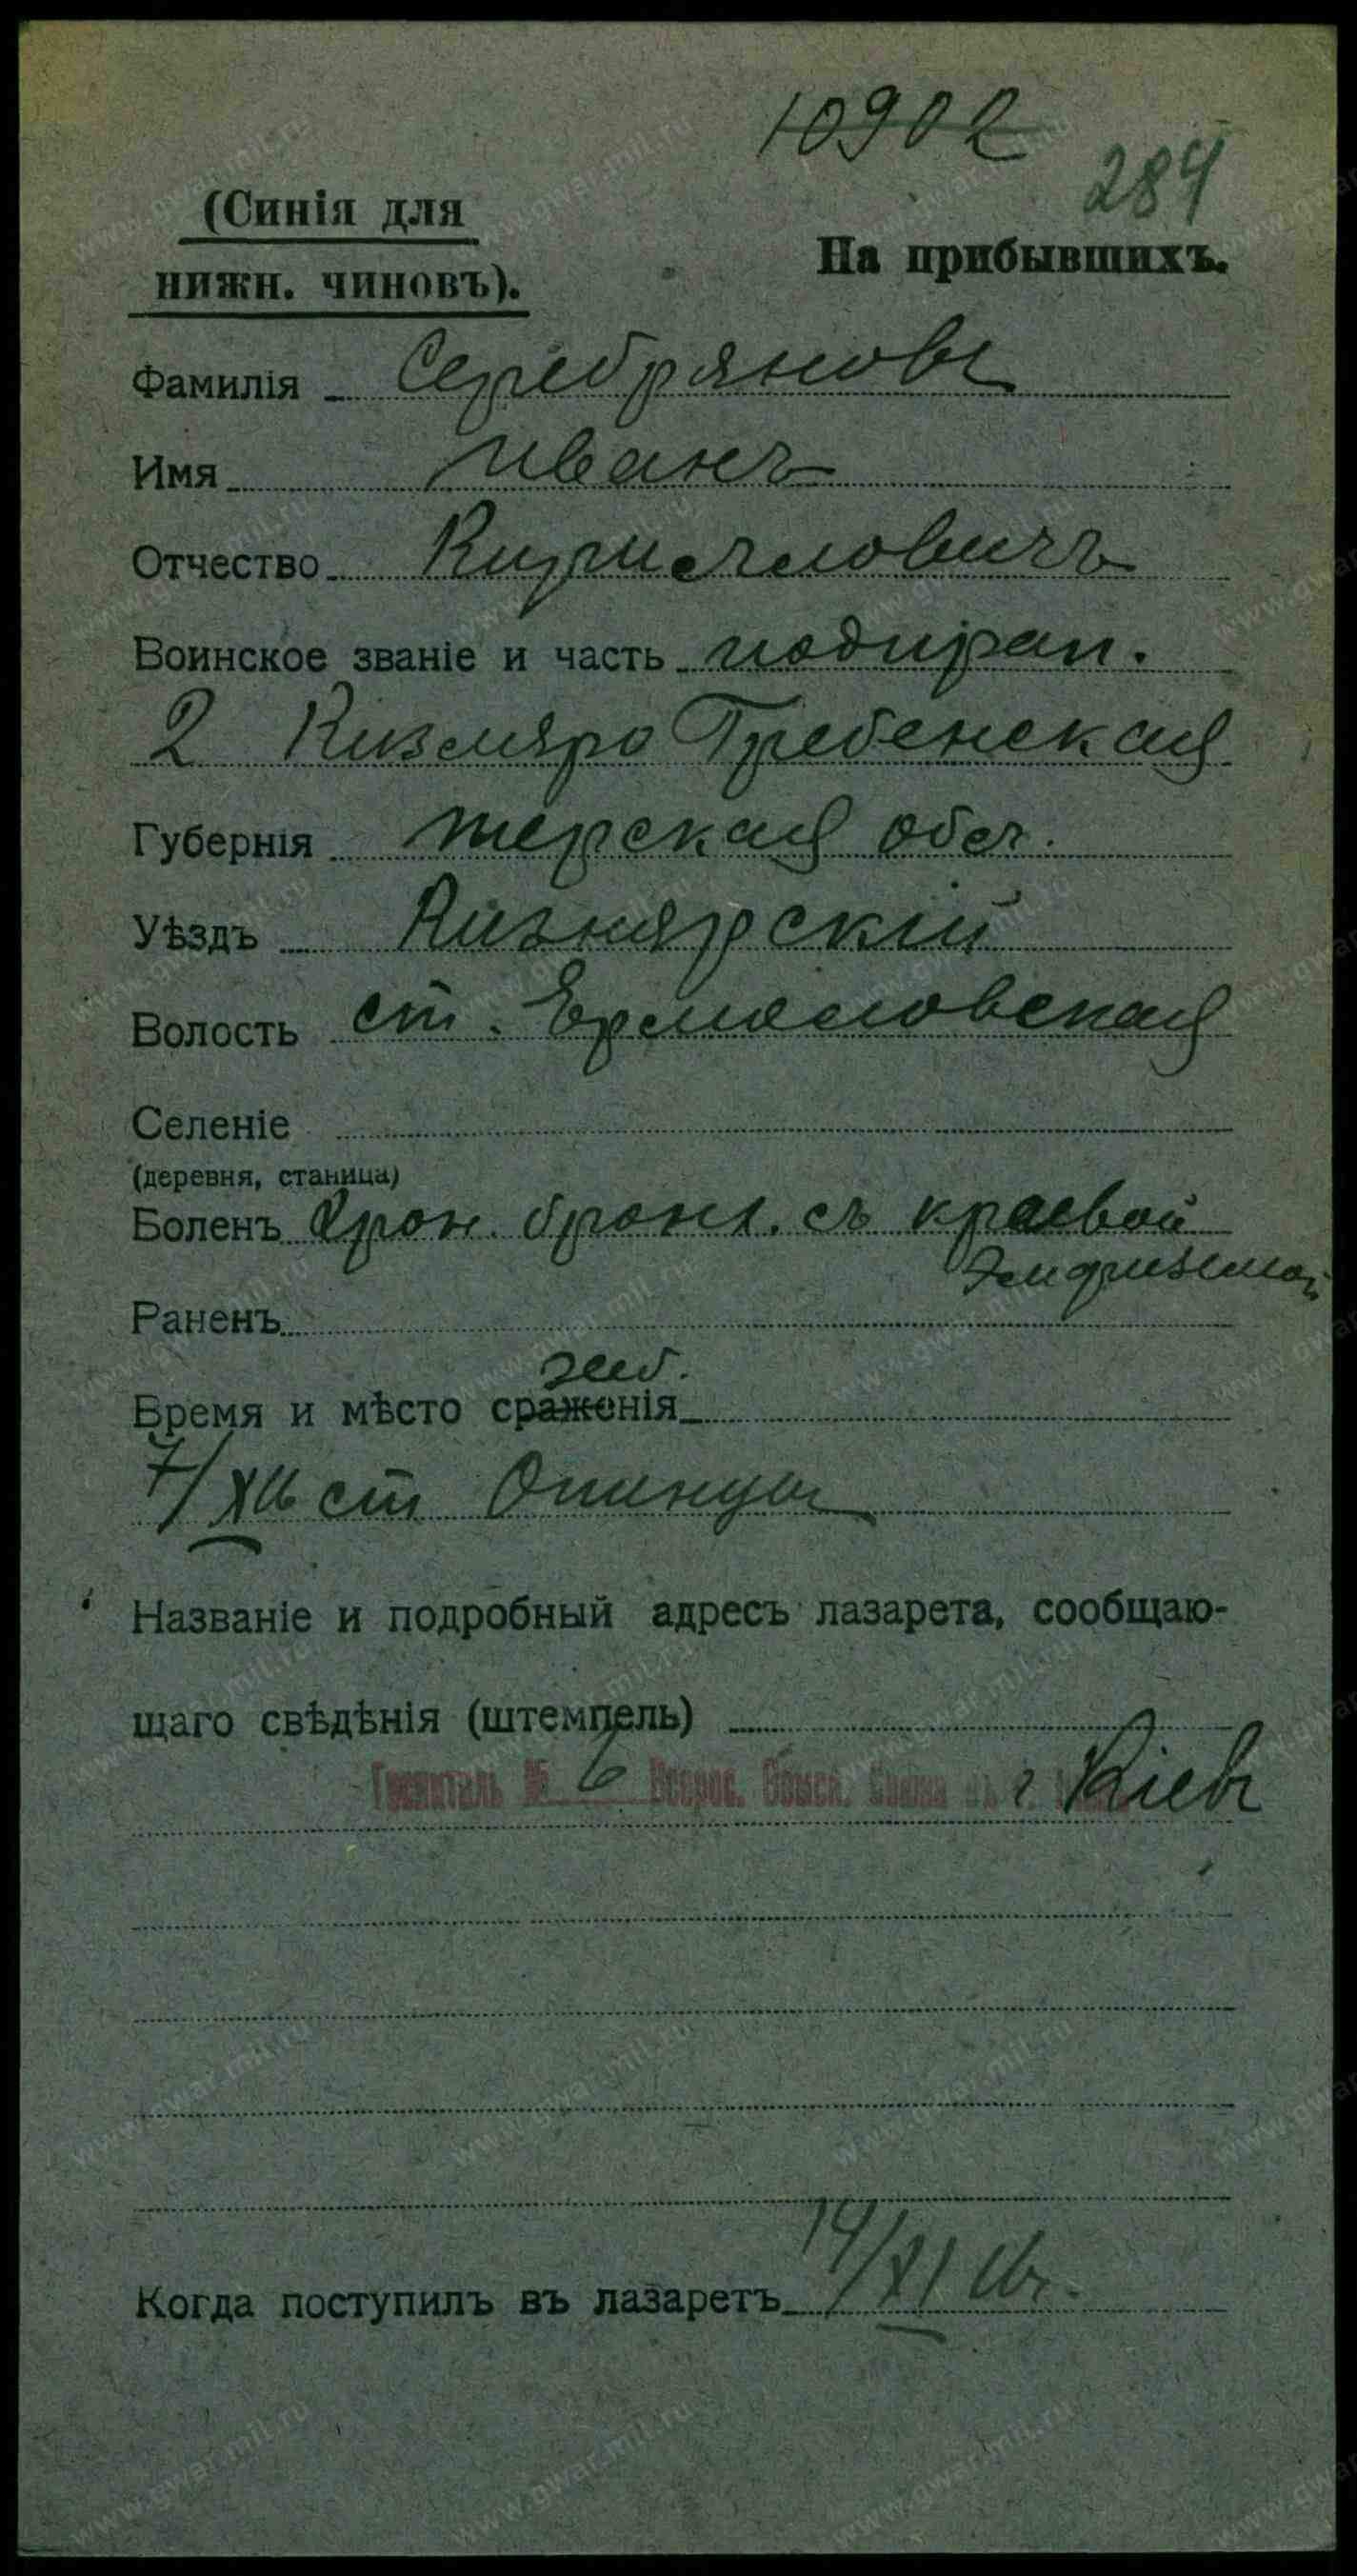 10902
284
(Синія для
нижн. чиновъ).
На прибывшихъ.
Фамилія Серебряновъ
Имя Иванъ
Отчество Кирилловичъ
Воинское званіе и часть подпрап.
2 Кизляро Гребенская
Губернія Терская обл.
Уѣздъ Кизлярскій
Волость ст. Ермоловская
Селеніе
(деревня, станица)
Боленъ Хрон. бронх. съ краевой
эмфиземой
Раненъ
заб.
Время и мѣсто сраженія
7/XI 16 ст
Названіе и подробный адресъ лазарета, сообщаю-
щаго свѣдѣнія (штемпель)
Госпиталь № 6 Всерос. Земск. Союза г Кіевъ
Когда поступилъ въ лазаретъ 14/XI 16 г.
www.gwar.mil.ru